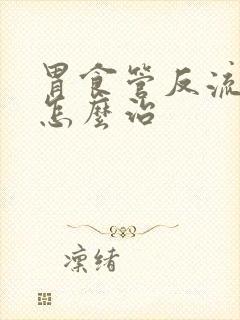 胃食管反流
怎麼治
凜緒